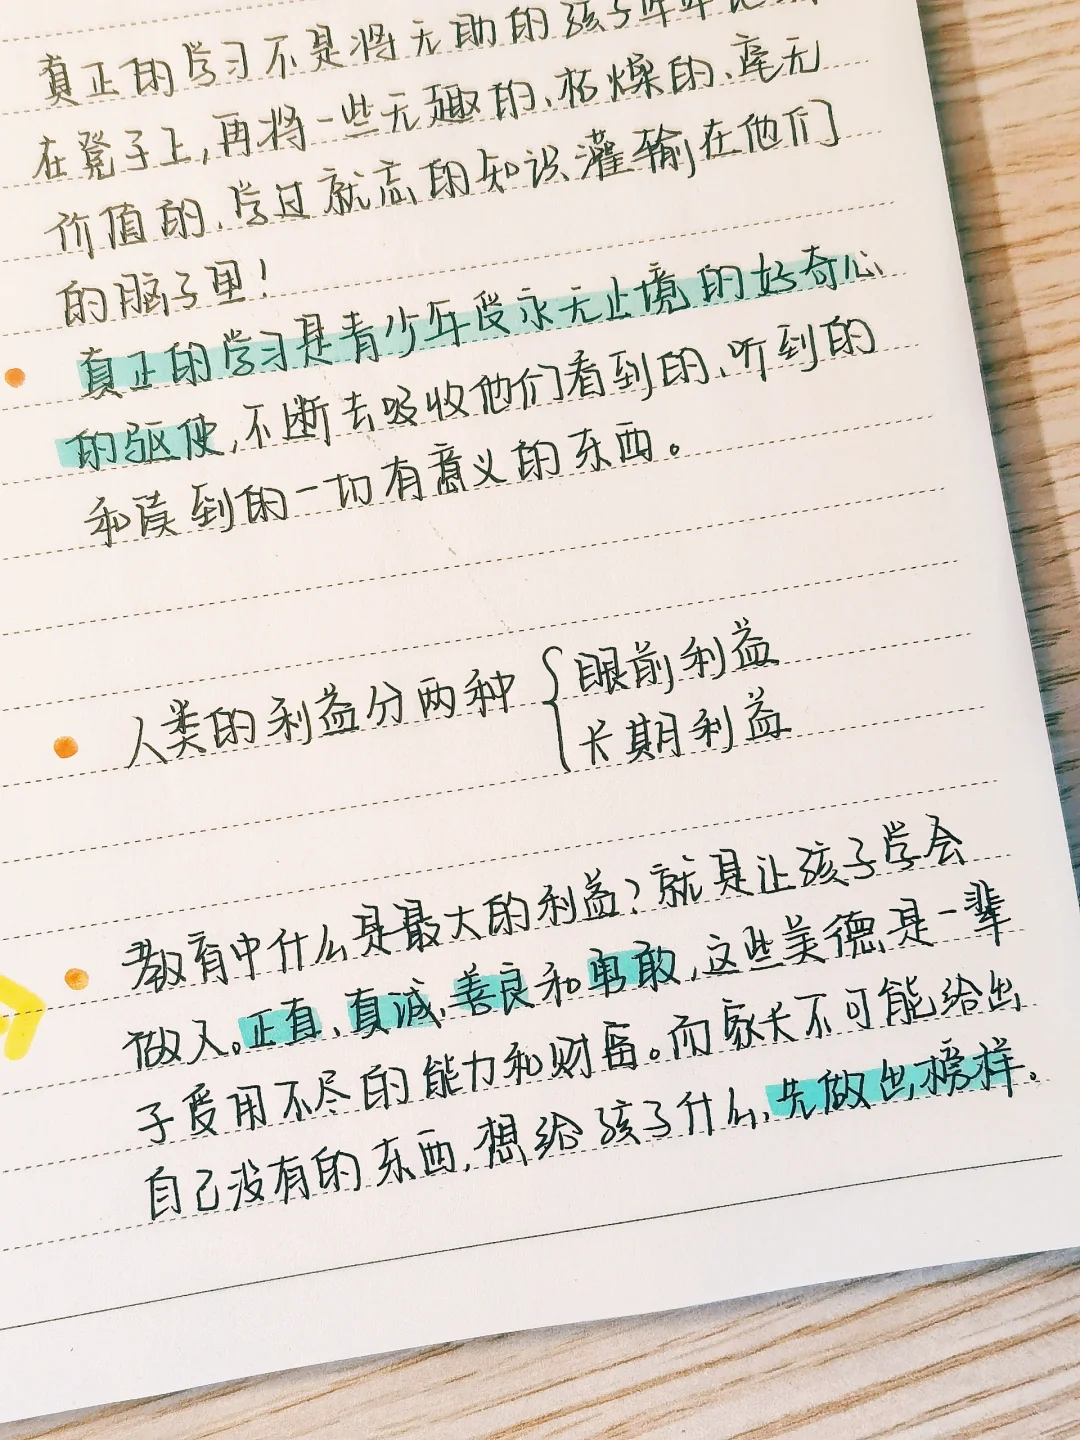 真正的学习不是将无助的孩子牢牢
在凳子上,再将一些无趣的、枯燥的、毫无
价值的、学过就忘的知识灌输在他们
的脑子里!
真正的学习是青少年受永无止境的好奇心
的驱使,不断去吸收他们看到的、听到的
和读到的一切有意义的东西。
人类的利益分两种{眼前利益
长期利益
教育中什么是最大的利益?就是让孩子学会
做人。正直、真诚、善良和勇敢,这些美德是一辈
子受用不尽的能力和财富。而家长不可能给出
自己没有的东西,想给孩子什么,先做出榜样.